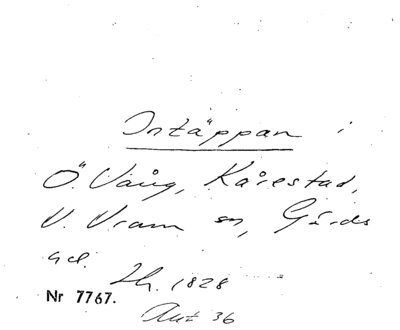 Intäppan i
Ö. Vång, Kårestad,
V. Vram sn, Gärds
hd. Lh. 1828
Nr 7767.
Akt 36